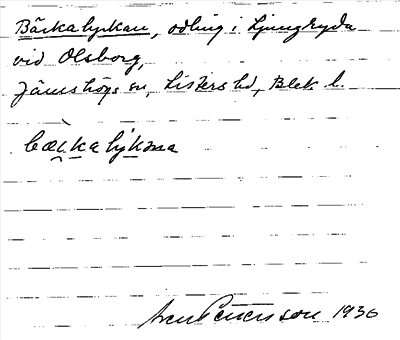 Bäckalyckan, odling i Ljungryda
vid Olsborg,
Jämshögs sn, Listers hd, Blek. l.
bæ̀kalỳkɷna
Sven Petersson 1936